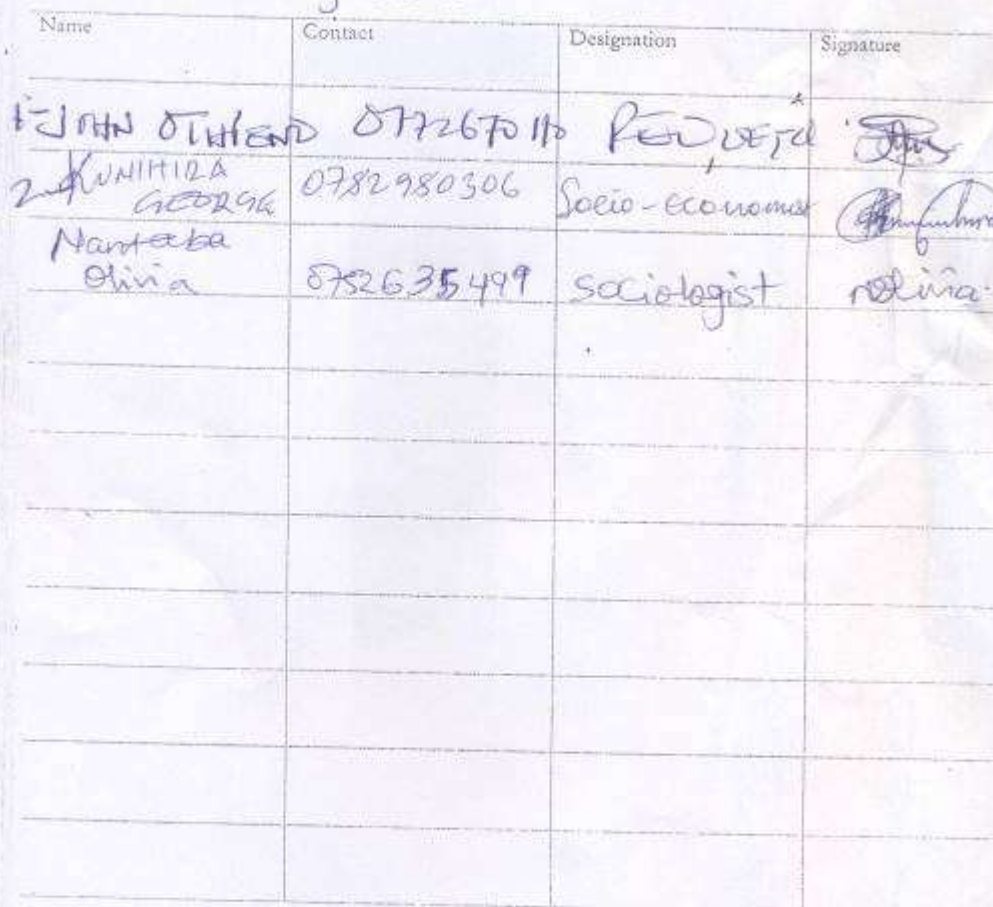 Name Contact Designation Signature
1- JOHN OTHIENO 0772670110
2- KUNIHIRA GEORGE 0782980306 Socio-economist
Olivia 0752635499 sociologist nolivia